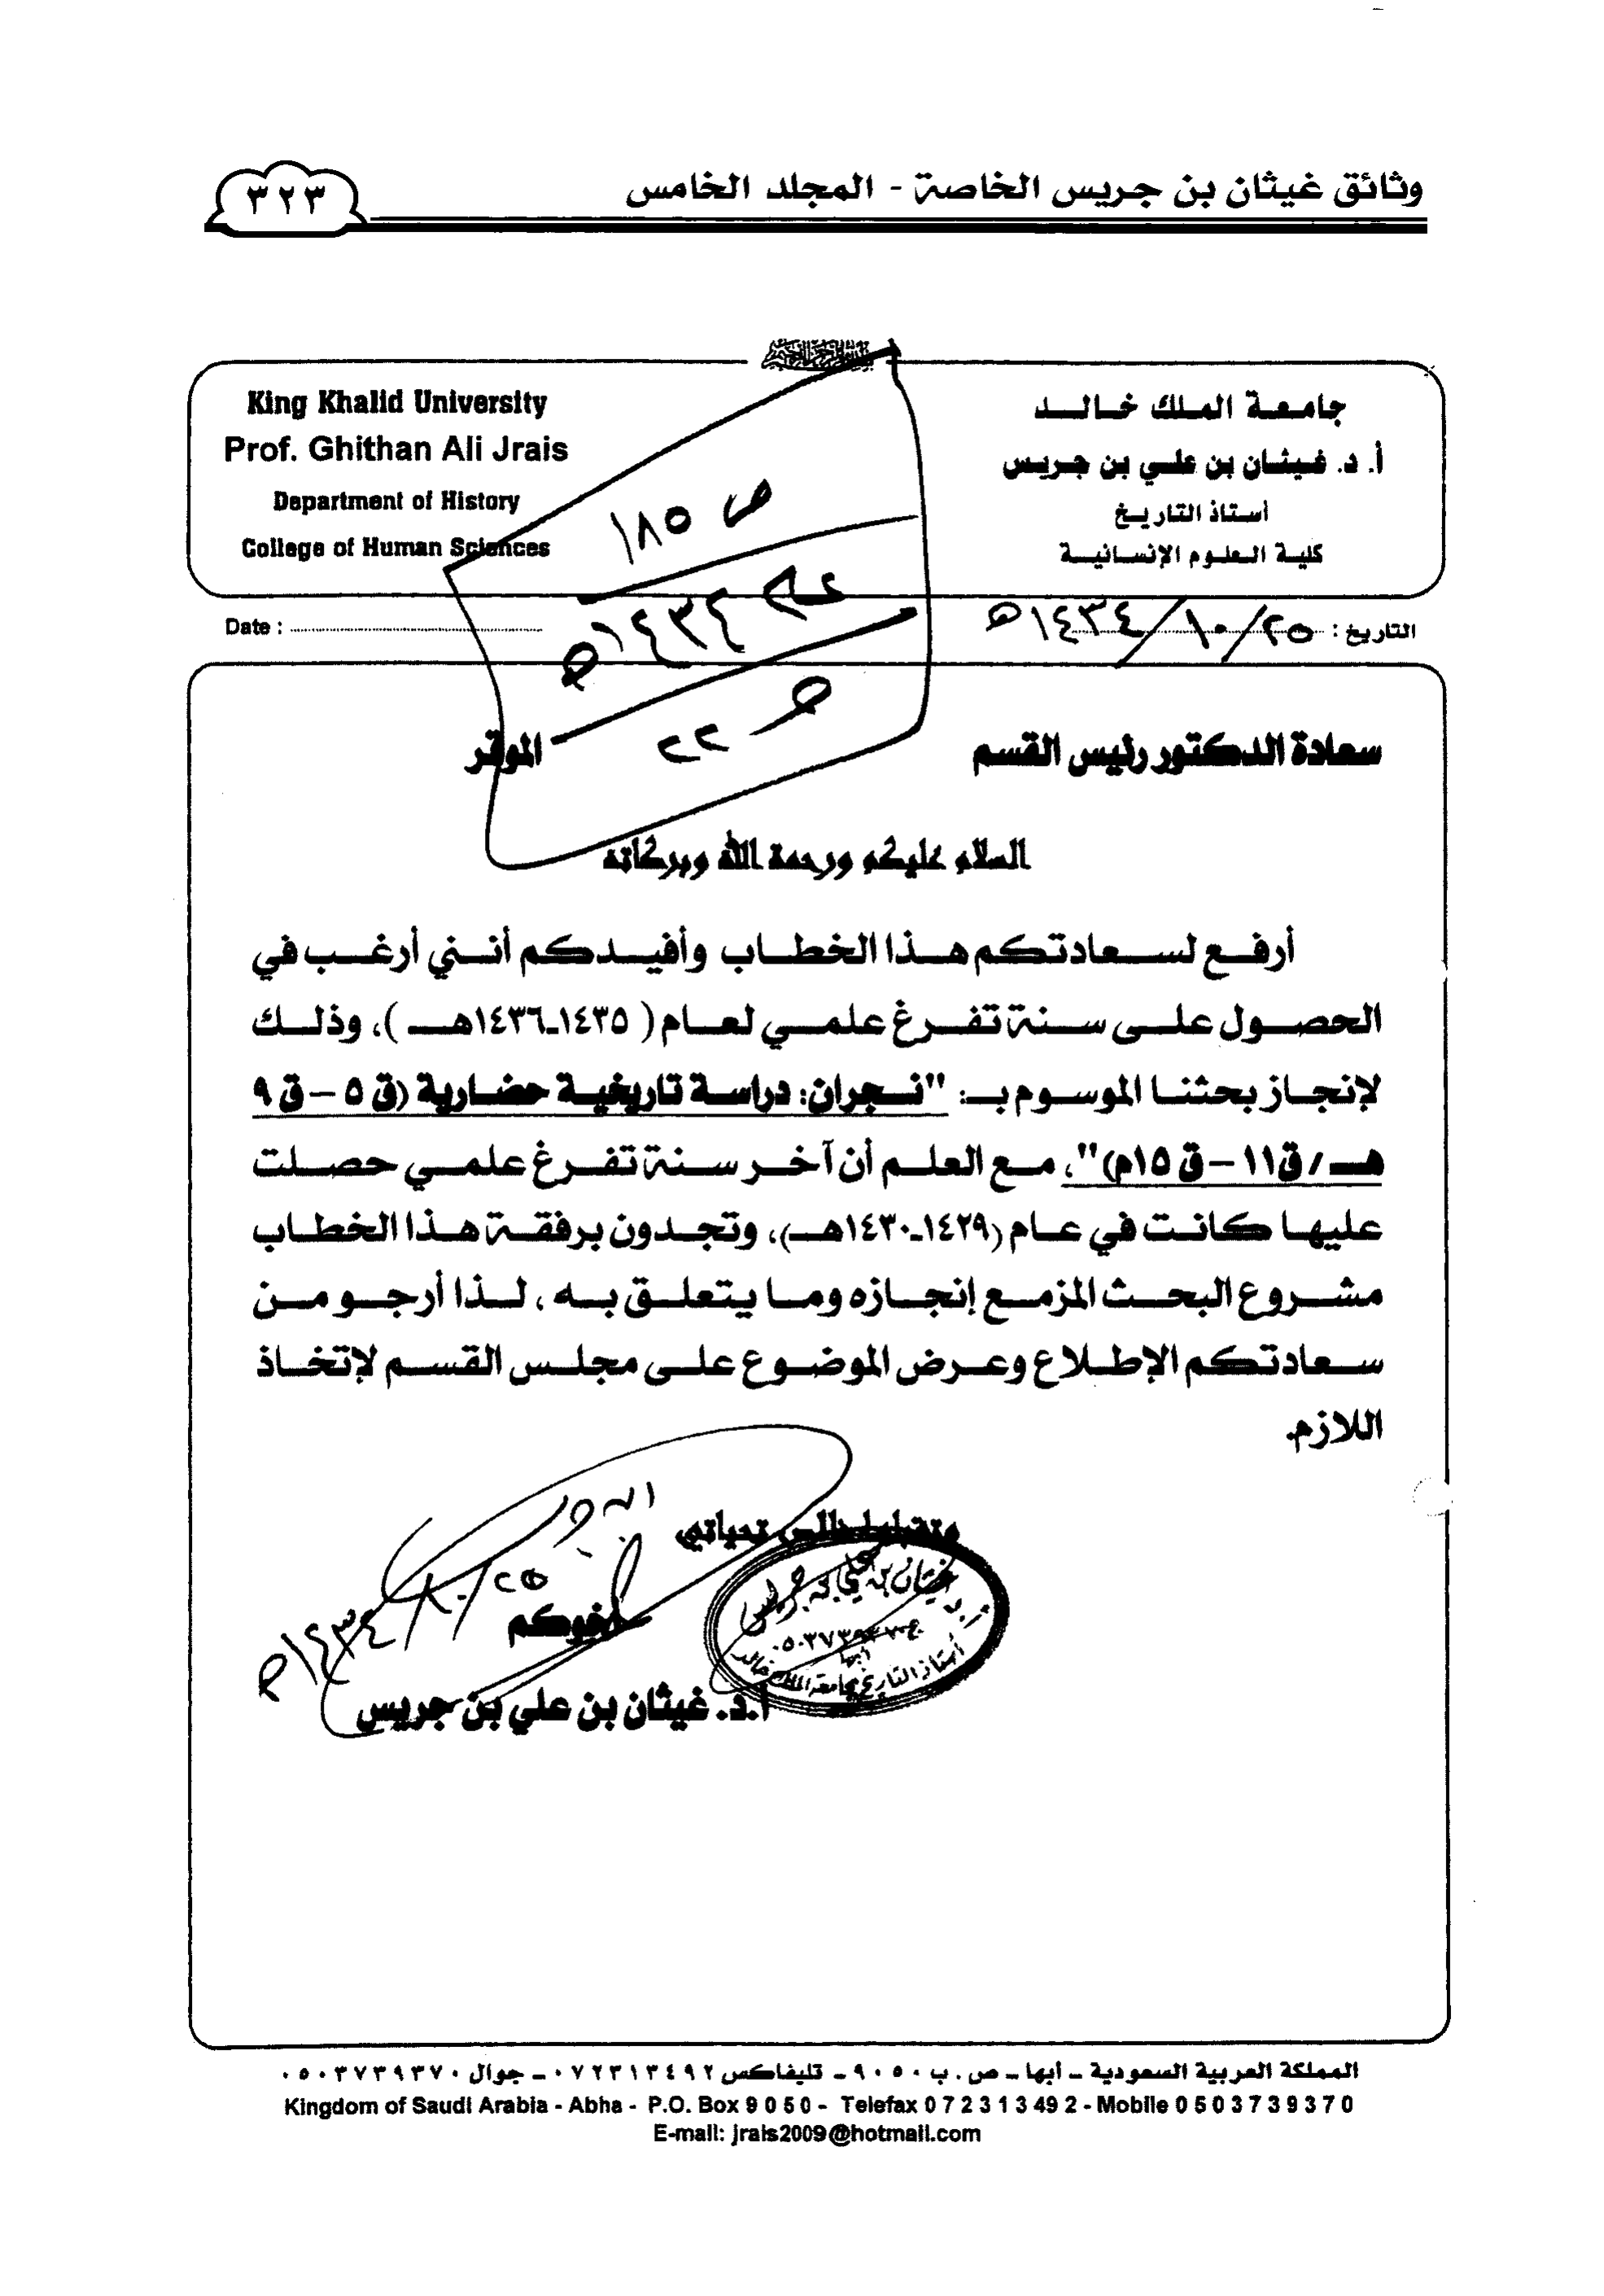 وثائق غيثان بن جريس الخاصة - المجلد الخامس
٣٢٣
جامعة الملك خالد
أ. د. غيثان بن علي بن جريس
أستاذ التاريخ
كلية العلوم الإنسانية
King Khalid University
Prof. Ghithan Ali Jrais
Department of History
College of Human Sciences
ص ١٨٥
١٤٣٤هـ
٢٢
التاريخ : ٢٥/١٠/١٤٣٤هـ
Date :
سعادة الدكتور رئيس القسم الموقر
السلام عليكم ورحمة الله وبركاته
أرفع لسعادتكم هذا الخطاب وأفيدكم أنني أرغب في
الحصول على سنة تفرغ علمي لعام ( ١٤٣٥-١٤٣٦هـ )، وذلك
لإنجاز بحثنا الموسوم بـ: "نجران: دراسة تاريخية حضارية (ق ٥ – ق ٩
هـ / ق١١ – ق ١٥م)"، مع العلم أن آخر سنة تفرغ علمي حصلت
عليها كانت في عام (١٤٢٩-١٤٣٠هـ)، وتجدون برفقة هذا الخطاب
مشروع البحث المزمع إنجازه وما يتعلق به ، لذا أرجو من
سعادتكم الإطلاع وعرض الموضوع على مجلس القسم لإتخاذ
اللازم.
وتقبلوا خالص تحياتي
أخوكم
٢٥/١٠/١٤٣٤هـ
أ.د. غيثان بن علي بن جريس
أ.د غيثان بن علي بن جريس
أبها
أستاذ التاريخ بجامعة الملك خالد
المملكة العربية السعودية – أبها – ص . ب ٩٠٥٠ – تليفاكس ٠٧٢٣١٣٤٩٢ – جوال ٠٥٠٣٧٣٩٣٧٠
Kingdom of Saudi Arabia - Abha - P.O. Box 9 0 5 0 - Telefax 0 7 2 3 1 3 49 2 - Mobile 0 5 0 3 7 3 9 3 7 0
E-mail: jrais2009@hotmail.com